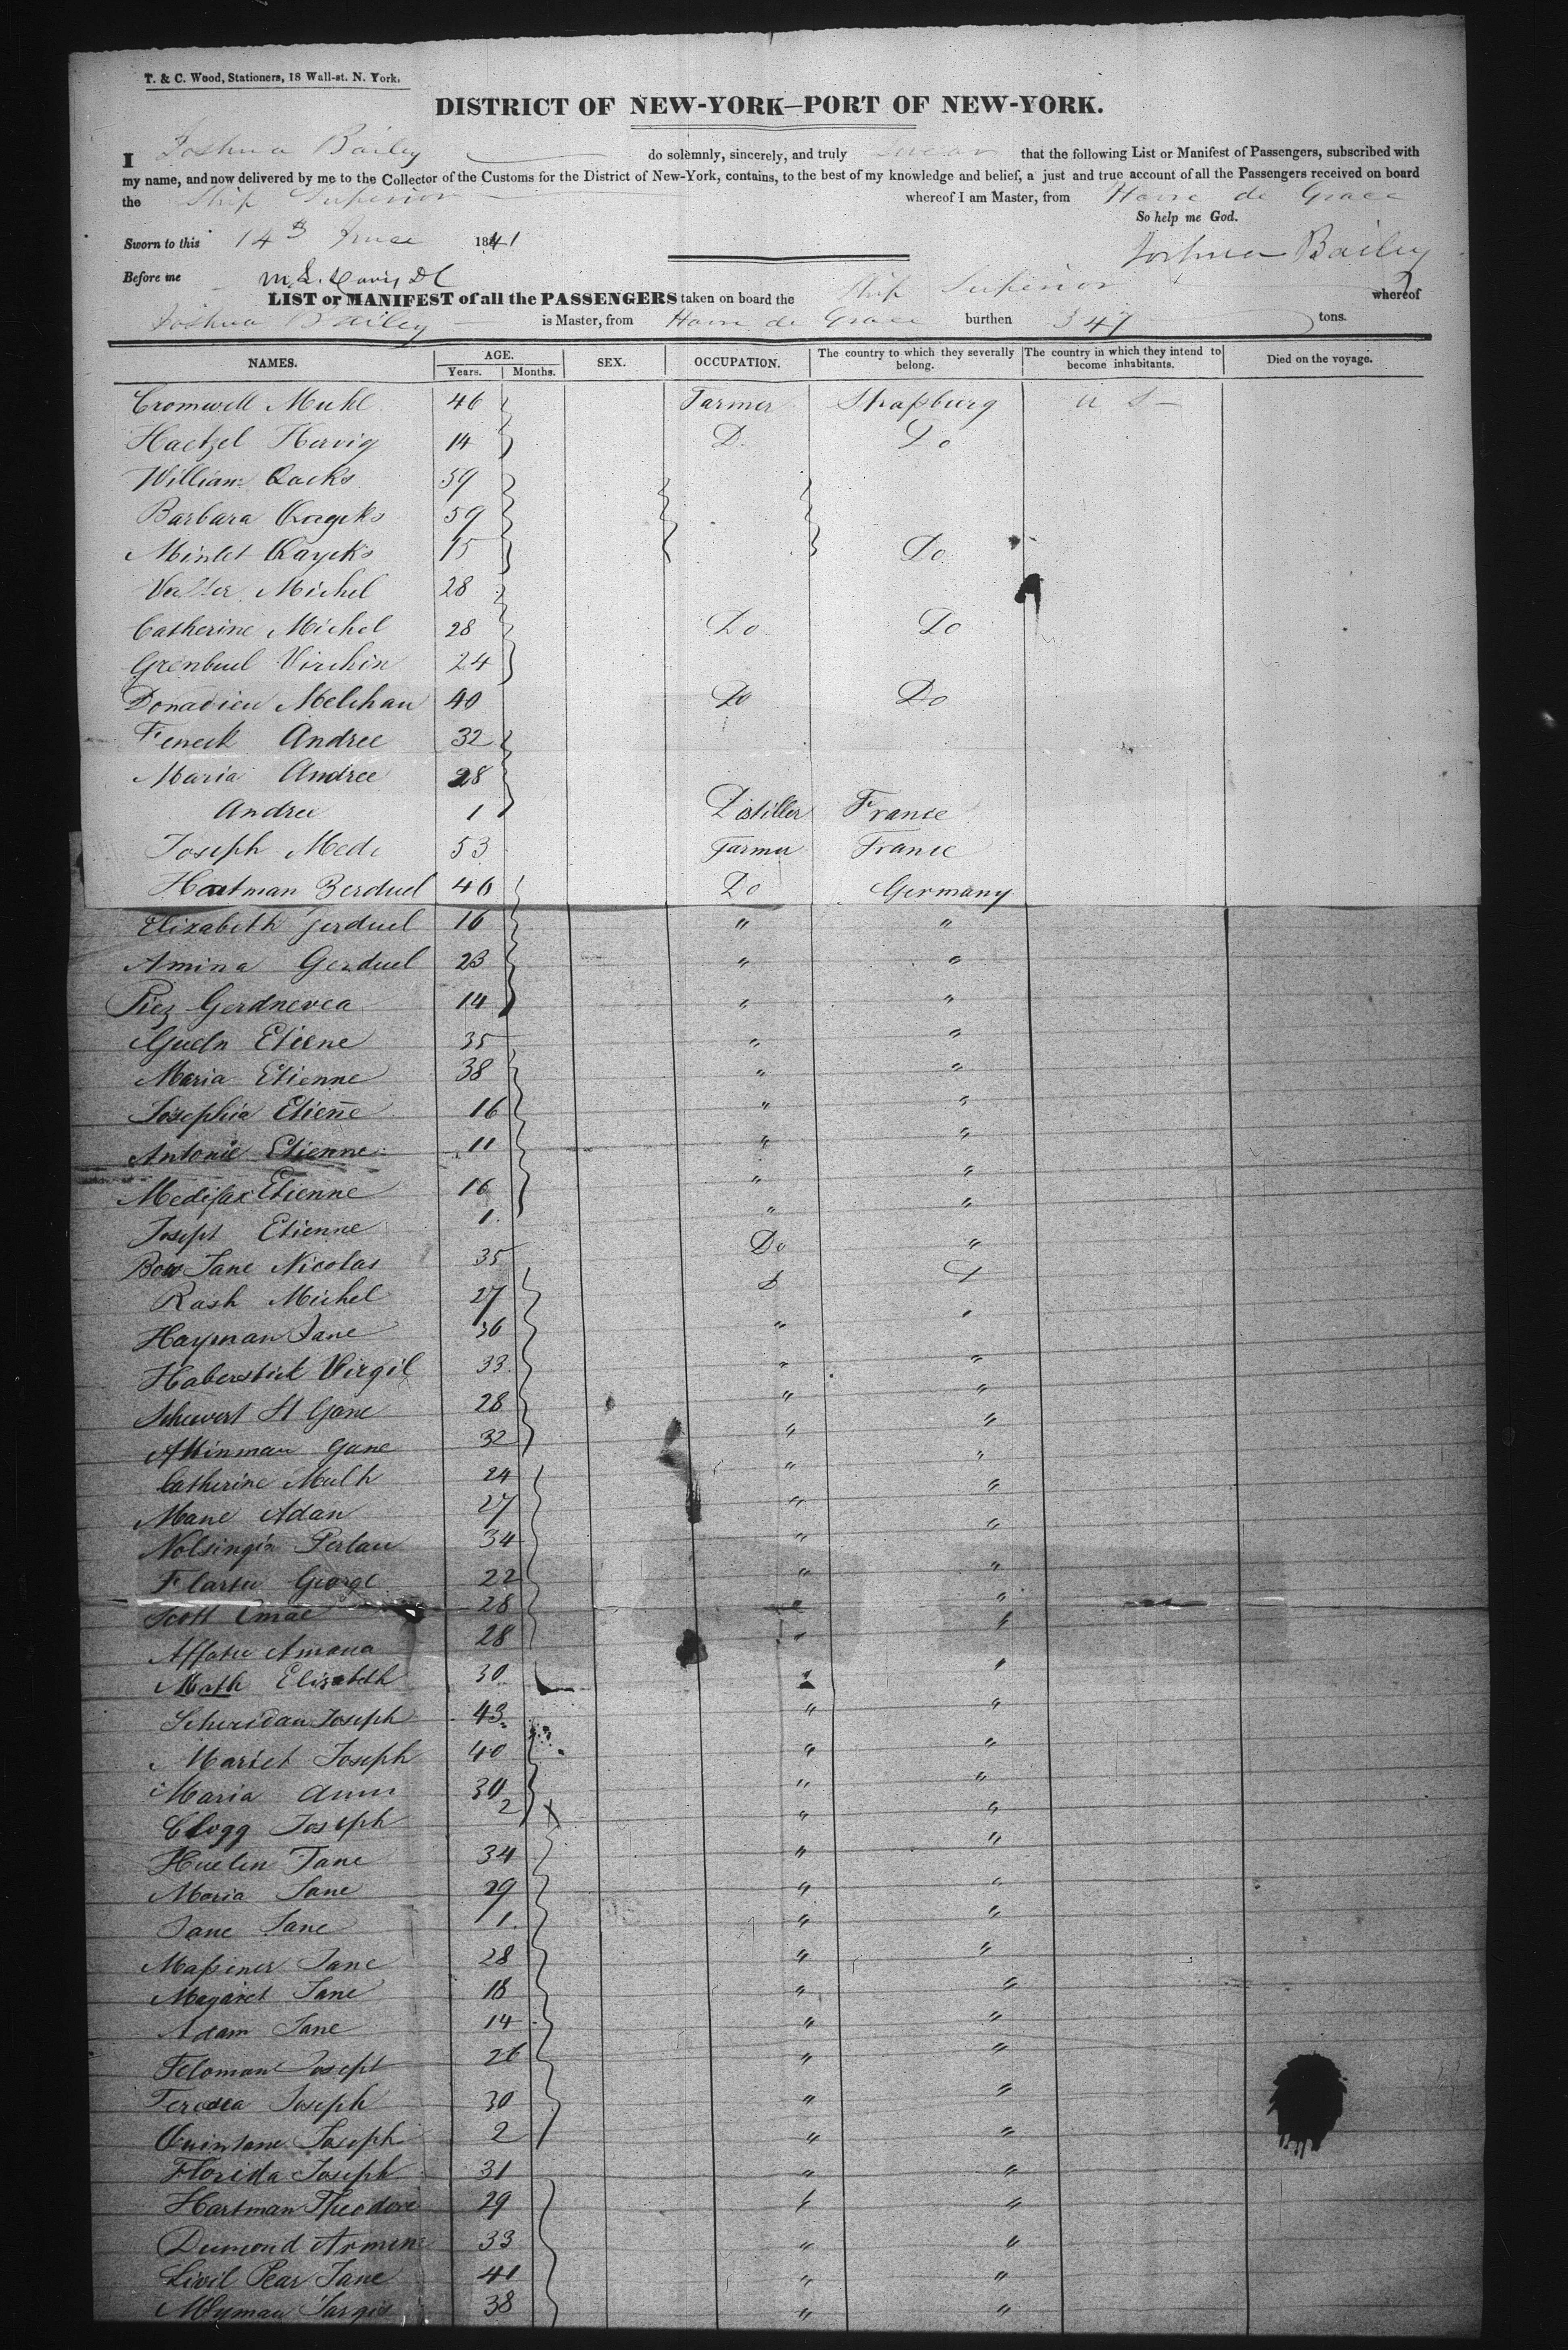 T. & C. Wood, Stationers, 18 Wall-st. N. York.
DISTRICT OF NEW-YORK—PORT OF NEW-YORK.
I Joshua Bailey do solemnly, sincerely, and truly swear that the following List or Manifest of Passengers, subscribed with
my name, and now delivered by me to the Collector of the Customs for the District of New-York, contains, to the best of my knowledge and belief, a just and true account of all the Passengers received on board
the Ship Superior whereof I am Master, from Havre de Grace
So help me God.
Sworn to this 14th June 1841 Joshua Bailey
Before me
LIST or MANIFEST of all the PASSENGERS taken on board the Ship Superior whereof
Joshua Bailey is Master, from Havre de Grace burthen 347 tons.
NAMES. AGE. SEX. OCCUPATION. The country to which they severally belong. The country in which they intend to become inhabitants. Died on the voyage.
Years. Months.
Cromwell Muhl 46 Farmer Strasburg U S
Haetzel Hervig 14 D. Do
William 59
Barbara 59
15 Do
Michel 28
Catherine Michel 28 Do Do
Virchin 24
Donadieu Melchau 40 Do Do
Feneck Andree 32
Maria Andree 28
Andree 1 Distiller France
Joseph Mede 53 Farmer France
Hartman Berduel 46 Do Germany
Elizabeth Gerduel 16 " "
Amina Gerduel 23 " "
Piez Gerdnevea 14 " "
Etiene 35 " "
Maria Etienne 38 " "
Josephia Etiene 16 " "
Antonie Etienne 11 " "
Etienne 16 " "
Josept Etienne 1 " "
Jane Nicolas 35 Do "
Rash Michel 27
Hayman Jane 36 " "
Haberstick Virgil 33 " "
St Gane 28 " "
Gane 32 " "
Catherine Mulh 24 " "
Mane Adan 27 " "
Perlau 34 " "
George 22 " "
Scott 28 " "
28 " "
Math Elizabeth 30 " "
Scheridan Joseph 43 " "
Martet Joseph 40 " "
Maria Ann 30 " "
Clogg Joseph 2 " "
Huelin Jane 34 " "
Maria Jane 29 " "
Jane Jane 1 " "
Jane 28 " "
Magaret Jane 18 " "
Adam Jane 14 " "
Feloman Josept 26 " "
Joseph 30 " "
Joseph 2 " "
Florida Joseph 31 " "
Hartman Theodore 29 " "
Dumond Armen 33 " "
Pear Jane 41 " "
38 " "